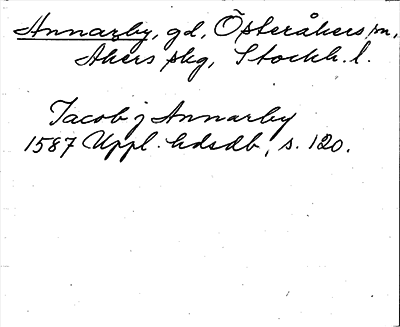 Annarby, gd, Österåkers sn,
Åkers skg, Stockh. l.
Jacob j Annarby
1587 Uppl. hdsdb, s. 120.